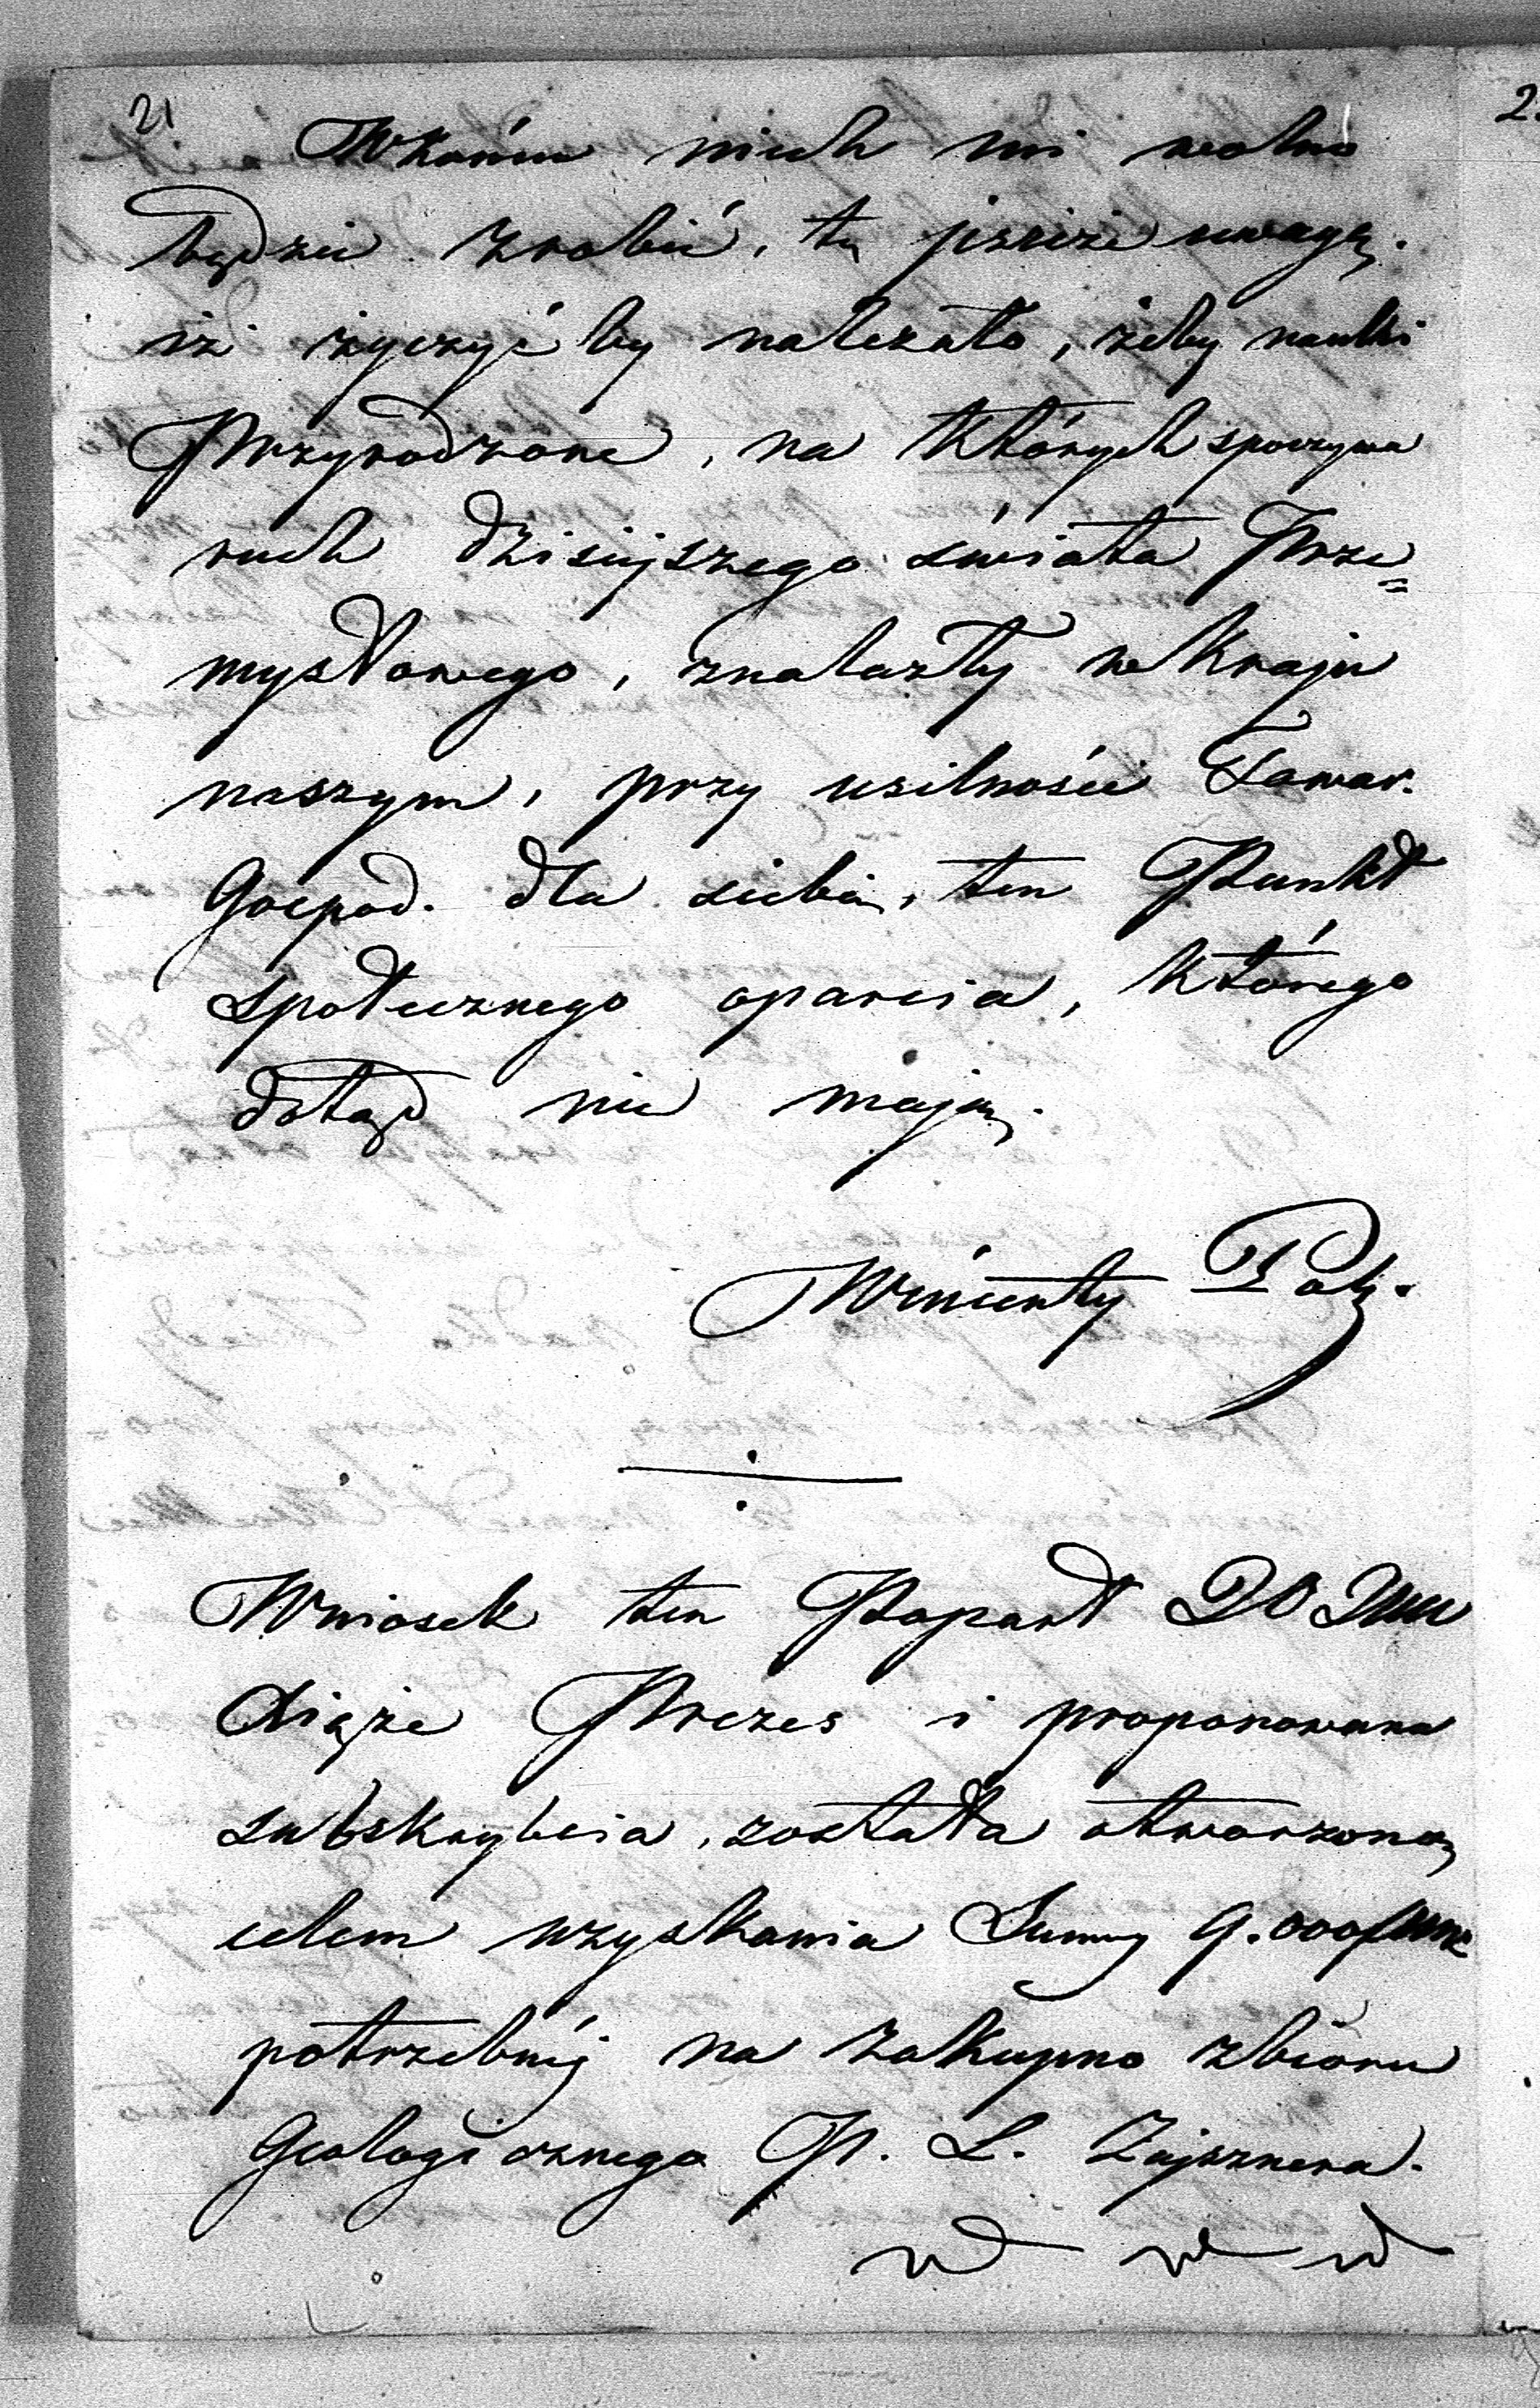 21
Wkońcu niech mi wolno
będzie zrobić, tę jeszcze uwagę.
iż życzyć by należało, żeby nauki
Przyrodzone, na których spoczywa
ruch dzisiejszego świata Prze=
mysłowego, znalazły w Kraju
naszym, przy usilności Towar.
Gospod. dla siebie, ten Punkt
społecznego oparcia, którego
dotąd nie mają.
Wincenty Pol.
Wniosek ten Poparł
Xiąże Prezes i proponowana
subskrybcia, została otworzoną
celem uzyskania Sumy 9.000
potrzebnéj na zakupno zbioru
Geologicznego P. L. Zajsznera.